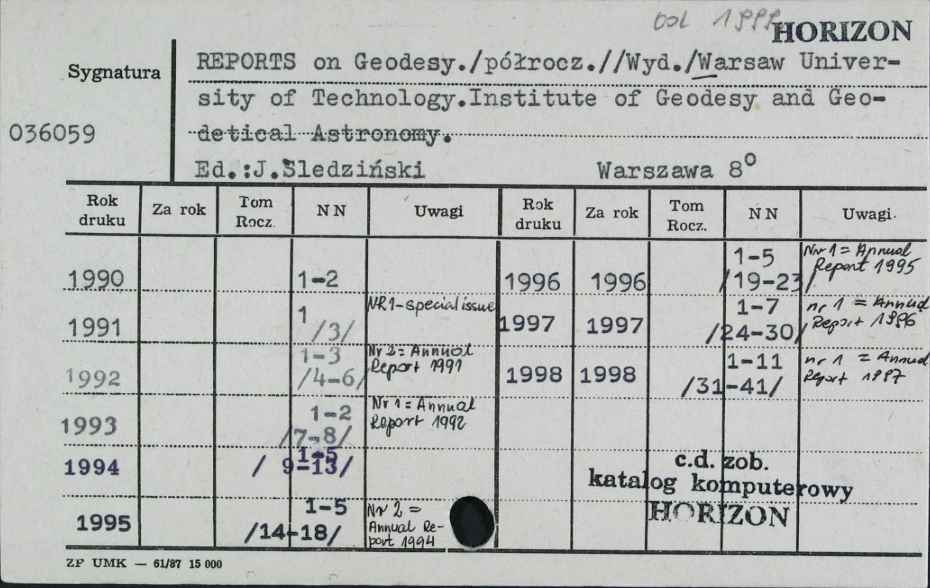 od 1999 HORIZON
REPORTS on Geodesy./półrocz.//Wyd./Warsaw Univer-
Sygnatura
sity of Technology.Institute of Geodesy and Geo-
036059
detical Astronomy.
Ed.:J.Sledziński Warszawa 8°
Rok druku Za rok Tom Rocz. NN Uwagi Rok druku Za rok Tom Rocz. NN Uwagi.
1990 1-2 1996 1996 1-5 /19-23/ Nr 1 = Annual Report 1995
1991 1 /3/ NR1-special issue 1997 1997 1-7 /24-30/ nr 1 = Annual Report 1996
1992 1-3 /4-6/ Nr 2= Annual Report 1991 1998 1998 1-11 /31-41/ nr 1 = Annual Report 1997
1993 1-2 /7-8/ Nr 1= Annual Report 1992
1994 1-5 / 9-13/
c.d. zob.
katalog komputerowy
HORIZON
1995 1-5 /14-18/ Nr 2 = Annual Re-port 1994
ZP UMK — 61/87 15 000